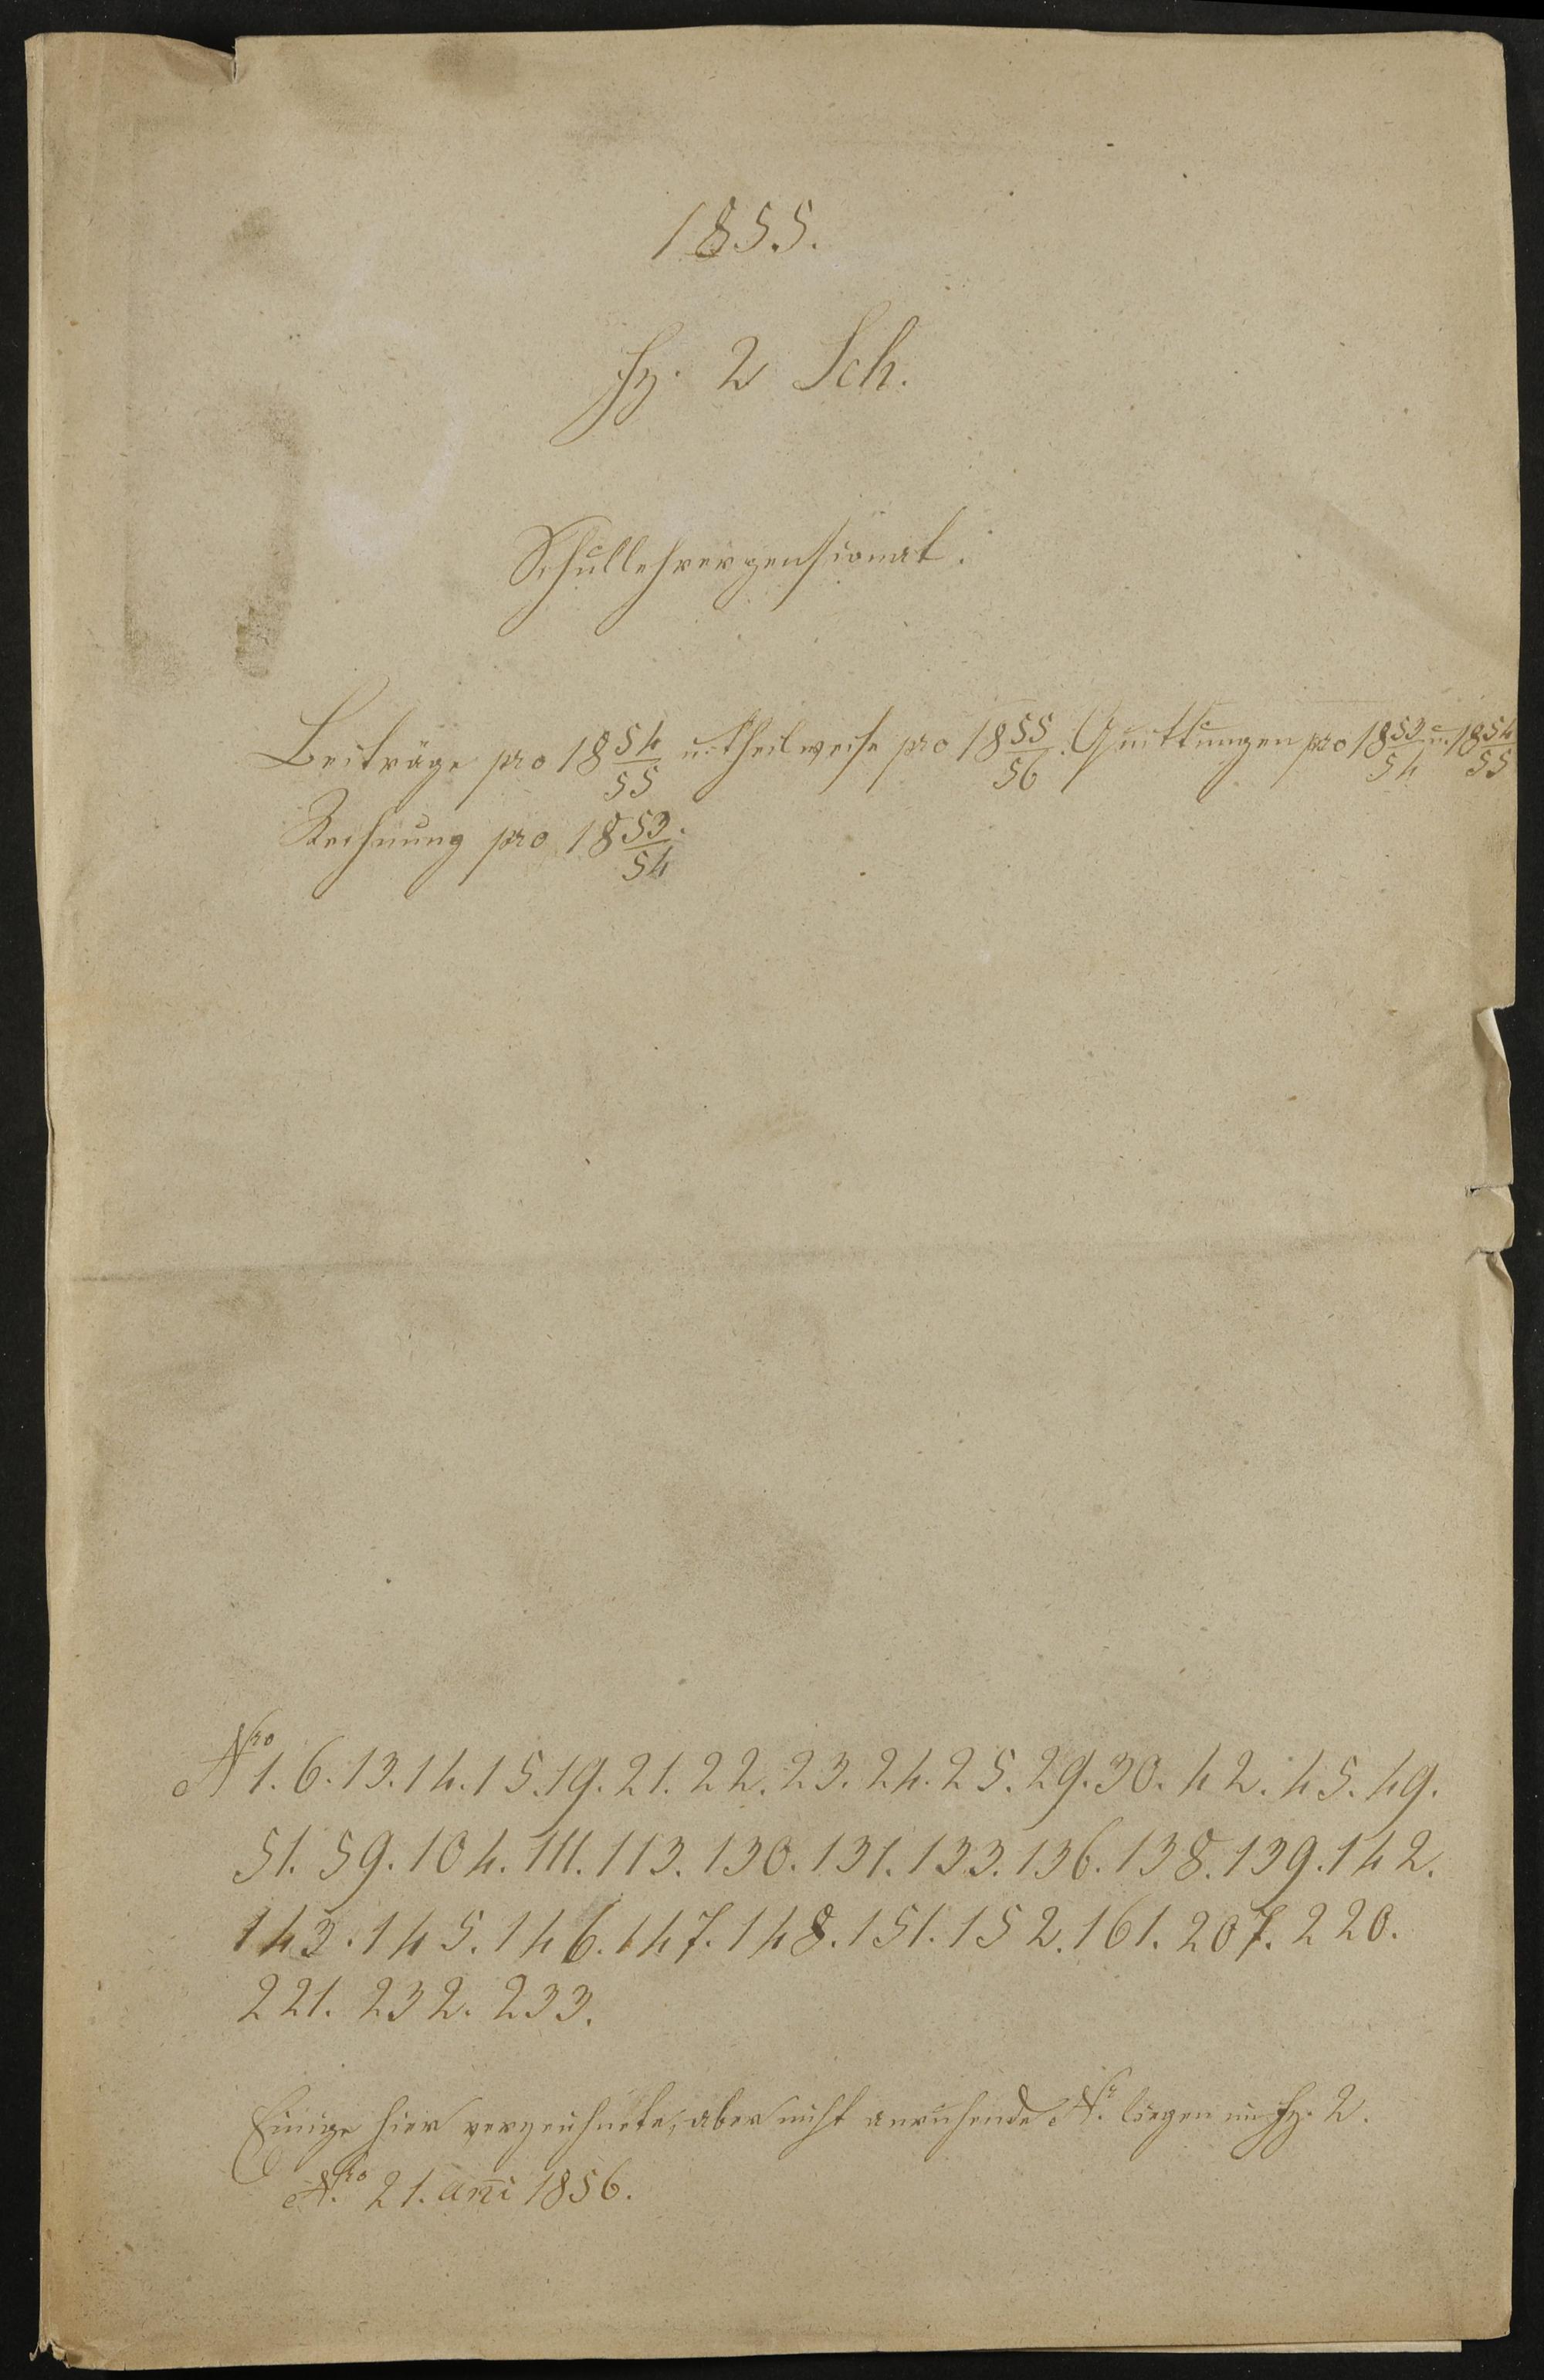 1855.
fz. 2 Sch.
Schullehrerpensionat.
Beiträge pro 18 54/55 u. theilweise pro 18 55/56. Quittungen pro 18 53/54 u. 18 54/55
Rechnung pro 18 53/54.
Nro 1. 6. 13. 14. 15. 19. 21. 22. 23. 24. 25. 29. 30. 42. 45. 49.
51. 59. 104. 111. 113. 130. 131. 133. 136. 138. 139. 142.
143. 145. 146. 147. 148. 151. 152. 161. 207. 220.
221. 232. 233.
Einige hier verzeichnete, aber nicht anruhende Nr. liegen in fz. 2.
Nro 21. ani 1856.